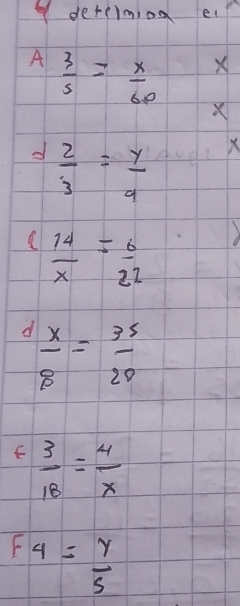 4 determina el
A 3/5 = x/60 x
x
d 2/3 = y/9 x
c 14/x = 6/22
d x/8 = 35/28
e 3/18 = 4/x
F 4 = y/5